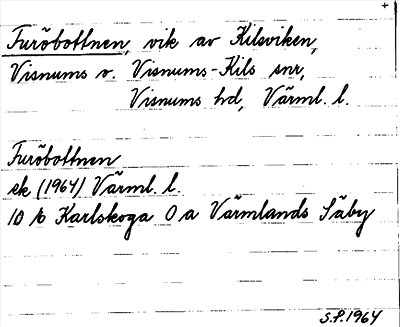 Furöbottnen, vik av Kilsviken,
Visnums o. Visnums-Kils snr,
Visnums hd, Värml. l.
Furöbottnen
ek (1964) Värml. l.
10 b Karlskoga O a Värmlands Säby
S.P. 1964